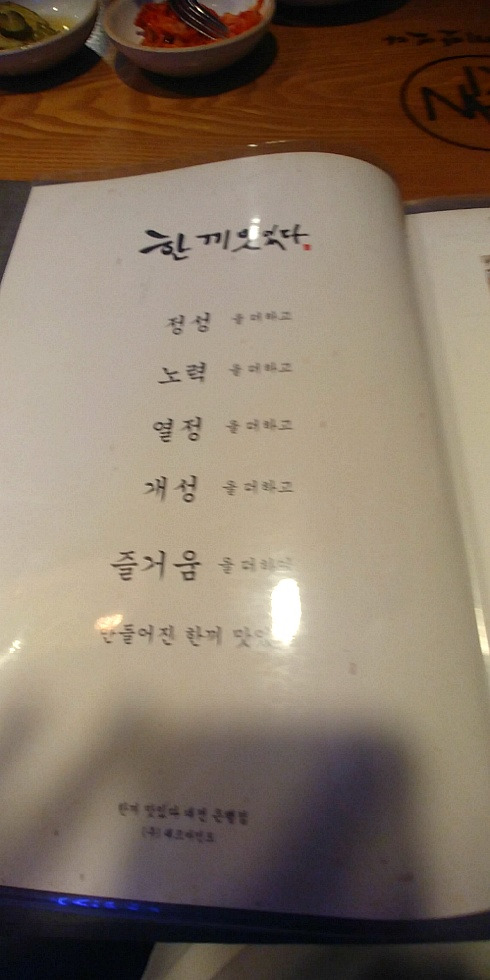 한끼맛있다
정성 을 더하고
노력 을 더하고
열정 을 더하고
개성 을 더하고
즐거움 을 더하여
만들어진 한끼 맛있
한끼 맛있다 대전 은행점